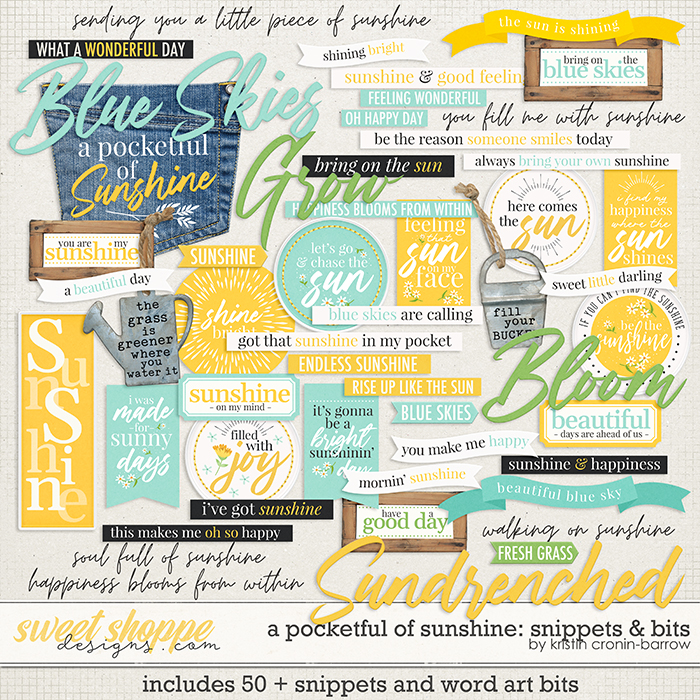 sending you a little piece of sunshine
the sun is shining
WHAT A WONDERFUL DAY
shining bright
bring on the
blue skies
sunshine & good feelin
Blue Skies
FEELING WONDERFUL
OH HAPPY DAY
you fill me with sunshine
be the reason someone smiles today
a pocketful
of
Sunshine
Grow
bring on the sun
always bring your own sunshine
HAPPINESS BLOOMS FROM WITHIN
here comes
the
sun
i find my
happiness
where the
sun
shines
you are my
sunshine
a beautiful day
SUNSHINE
let's go
& chase the
sun
feeling
that
sun
on my
face
sweet little darling
the
grass
is
greener
where
you
water it
shine
bright
blue skies are calling
fill
your
BUCKET
IF YOU CAN'T FIND THE SUNSHINE
be the
sunshine
got that sunshine in my pocket
SunShine
Sunshine
ENDLESS SUNSHINE
RISE UP LIKE THE SUN
Bloom
i was
made
-for-
sunny
days
sunshine
- on my mind -
it's gonna
be a
bright
sunshinin'
day
BLUE SKIES
beautiful
- days are ahead of us -
filled
with
joy
you make me happy
sunshine & happiness
mornin' sunshine
beautiful blue sky
i've got sunshine
have a
good day
this makes me oh so happy
walking on sunshine
FRESH GRASS
soul full of sunshine
happiness blooms from within
Sundrenched
sweet shoppe
designs.com
a pocketful of sunshine: snippets & bits
by kristin cronin-barrow
includes 50 + snippets and word art bits